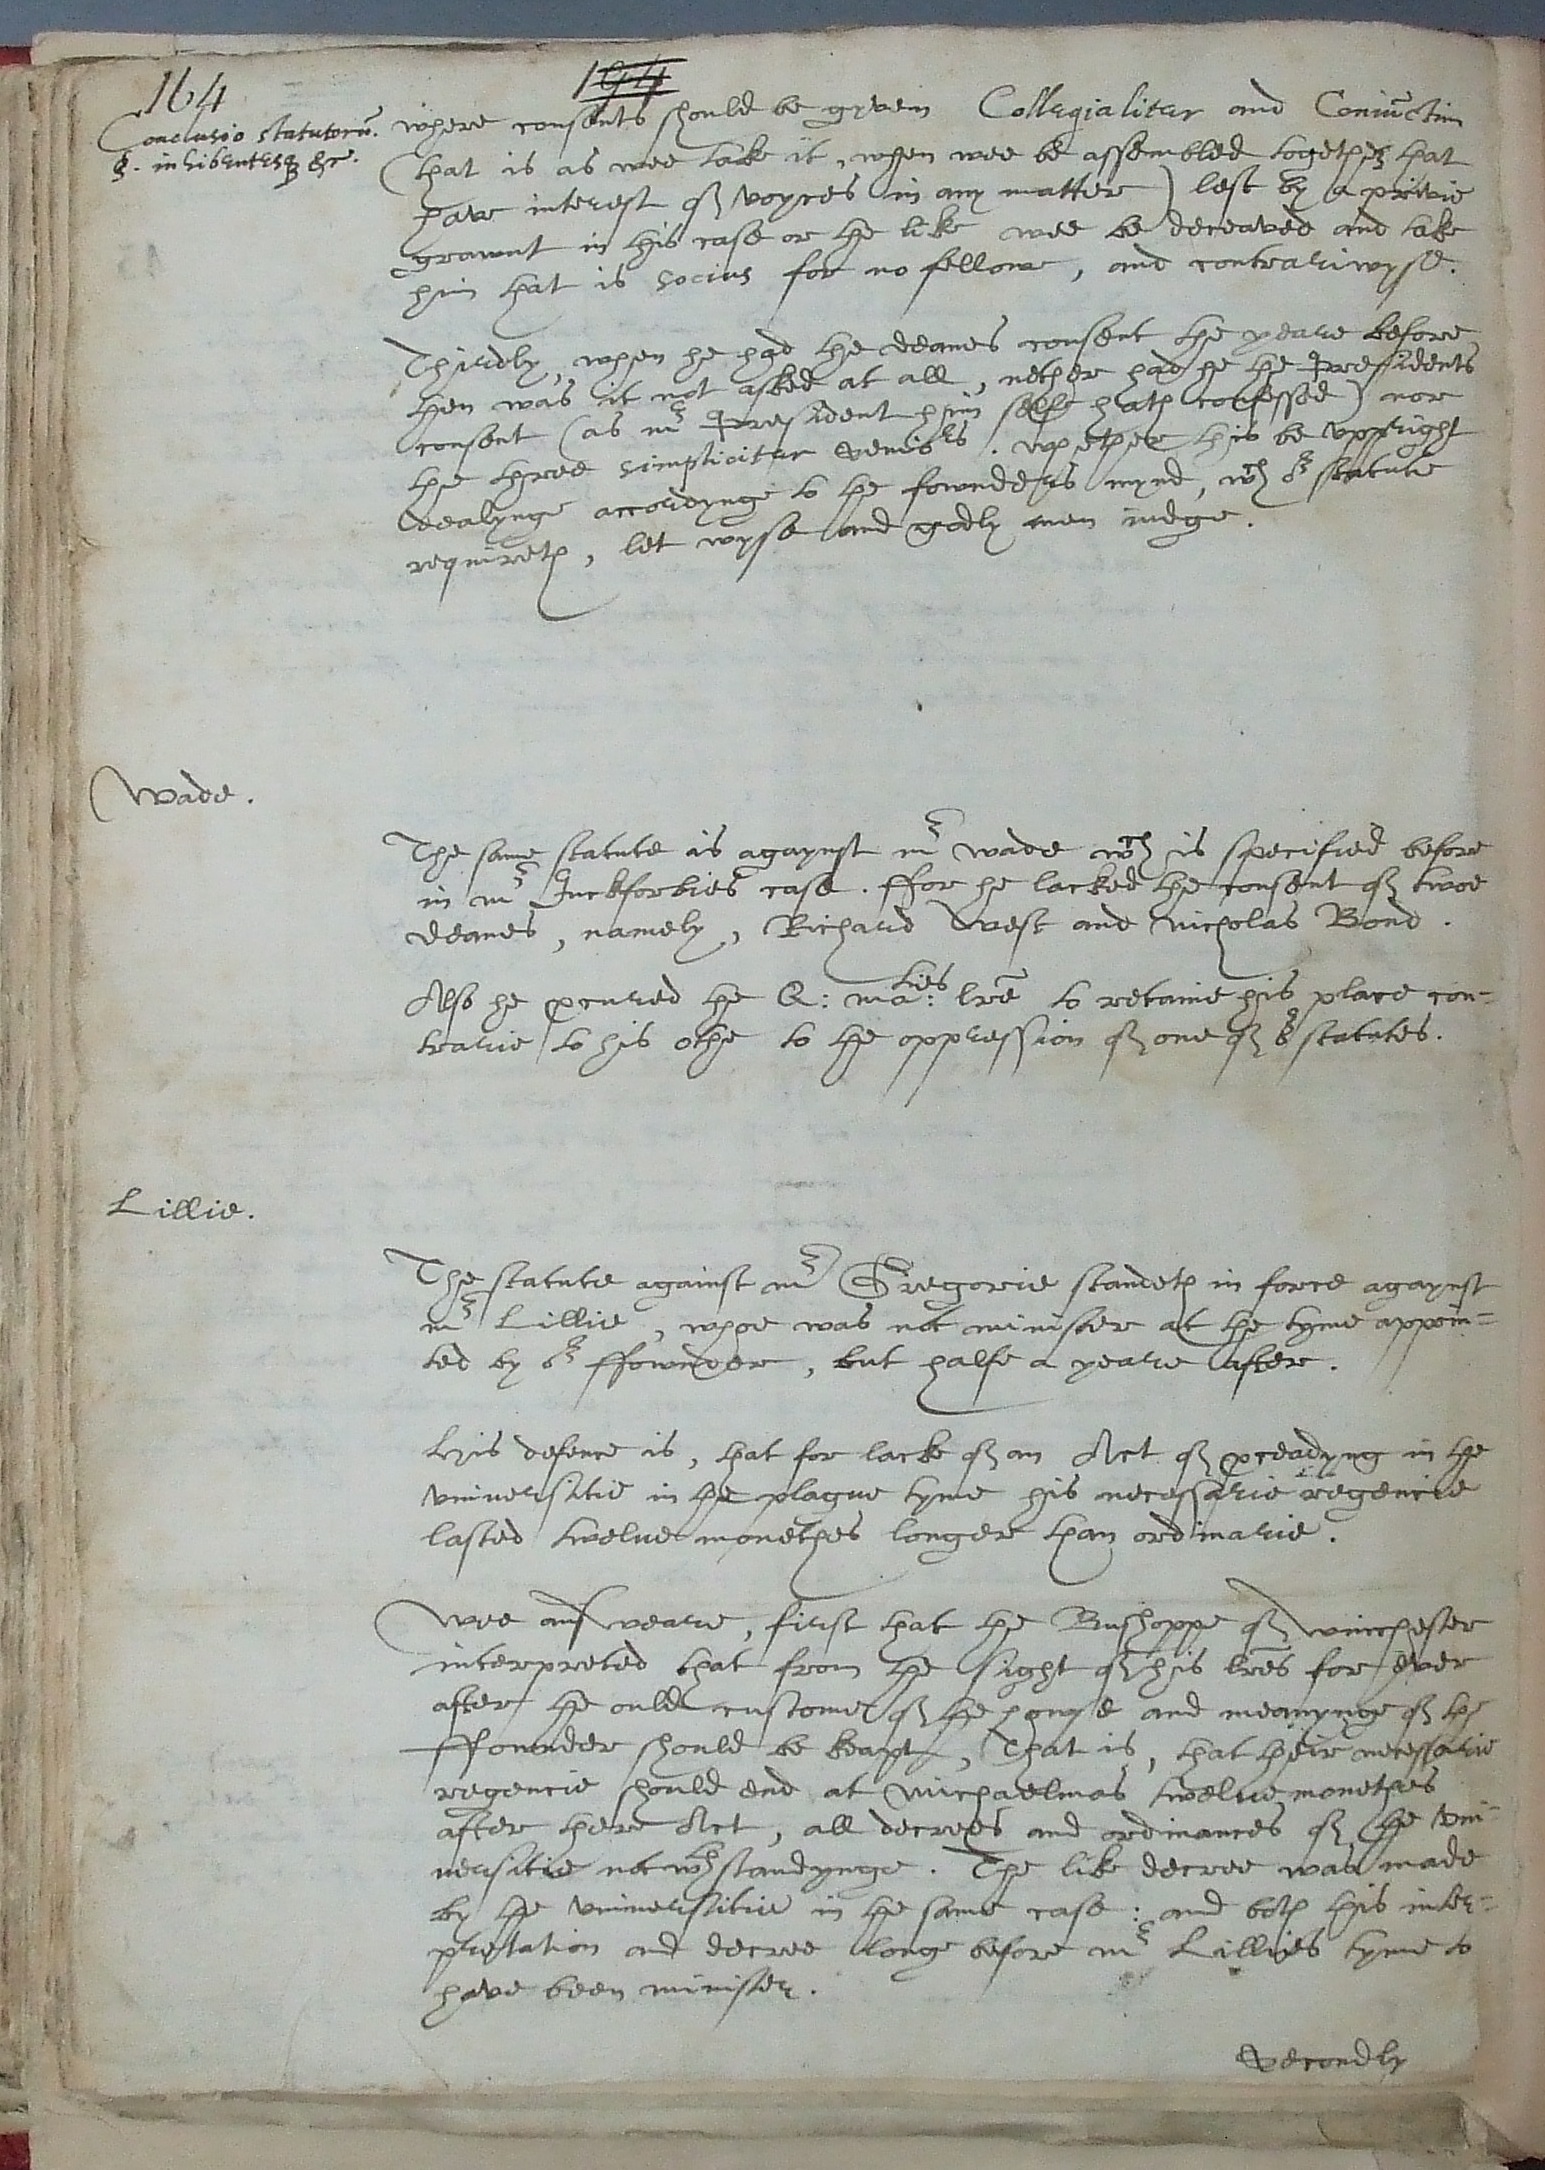 164
194
Conclusio statutorū.
§. inhibentesq̃ &c.
where consents should be given Collegialiter and Coniūctim
(that is as wee take it, when wee be assembled together that
have interest of voyces in any matter) lest by a privie
graunt in this case or the like wee be deceaved and take
him that is socius for no fellowe, and contrariwyse.
Thirdly, when he had the deanes consent the yeare before
then was it not asked at all, nether had he the Presidents
consent (as mr President him selfe hath confessed) nor
the three simpliciter Seniors. whether this be vppright
dealynge accordynge to the fownders mynd, wch or statute
requireth, let wyse and godly men iudge.
Wade.
The same statute is agaynst mr wade wch is specified before
in mr case. ffor he lacked the consent of twoe
deanes, namely, Richard West and Nicholas Bond.
Also he pcured the Q: maties: lrē to retaine his place con-
trarie to his othe to the oppression of one of or statutes.
Lillie.
The statute against mr Gregorie standeth in force agaynst
mr Lillie, whoe was not minister at the tyme appoin=
ted by or ffownder, but halfe a yeare after.
His defence is, that for lacke of an Act of pceadyng in the
vniuersitie in the plague tyme his necessarie regencie
lasted twelue monethes longer than ordinarie.
Wee answeare, first that the Bushoppe of winchester
interpreted that from the sight of his lrēs for ever
after the oulde custome of the howse and meanynge of the
ffownder should be keapt, That is, that their necessarie
regencie should end at Michaelmas twelue monethes
after there Act, all decrees and ordinances of the vni-
uersitie notwthstandynge. The like decree was made
by the vniuersitie in the same case: and both this inter=
pretation and decree longe before mr Lillies tyme to
have been minister.
Secondly